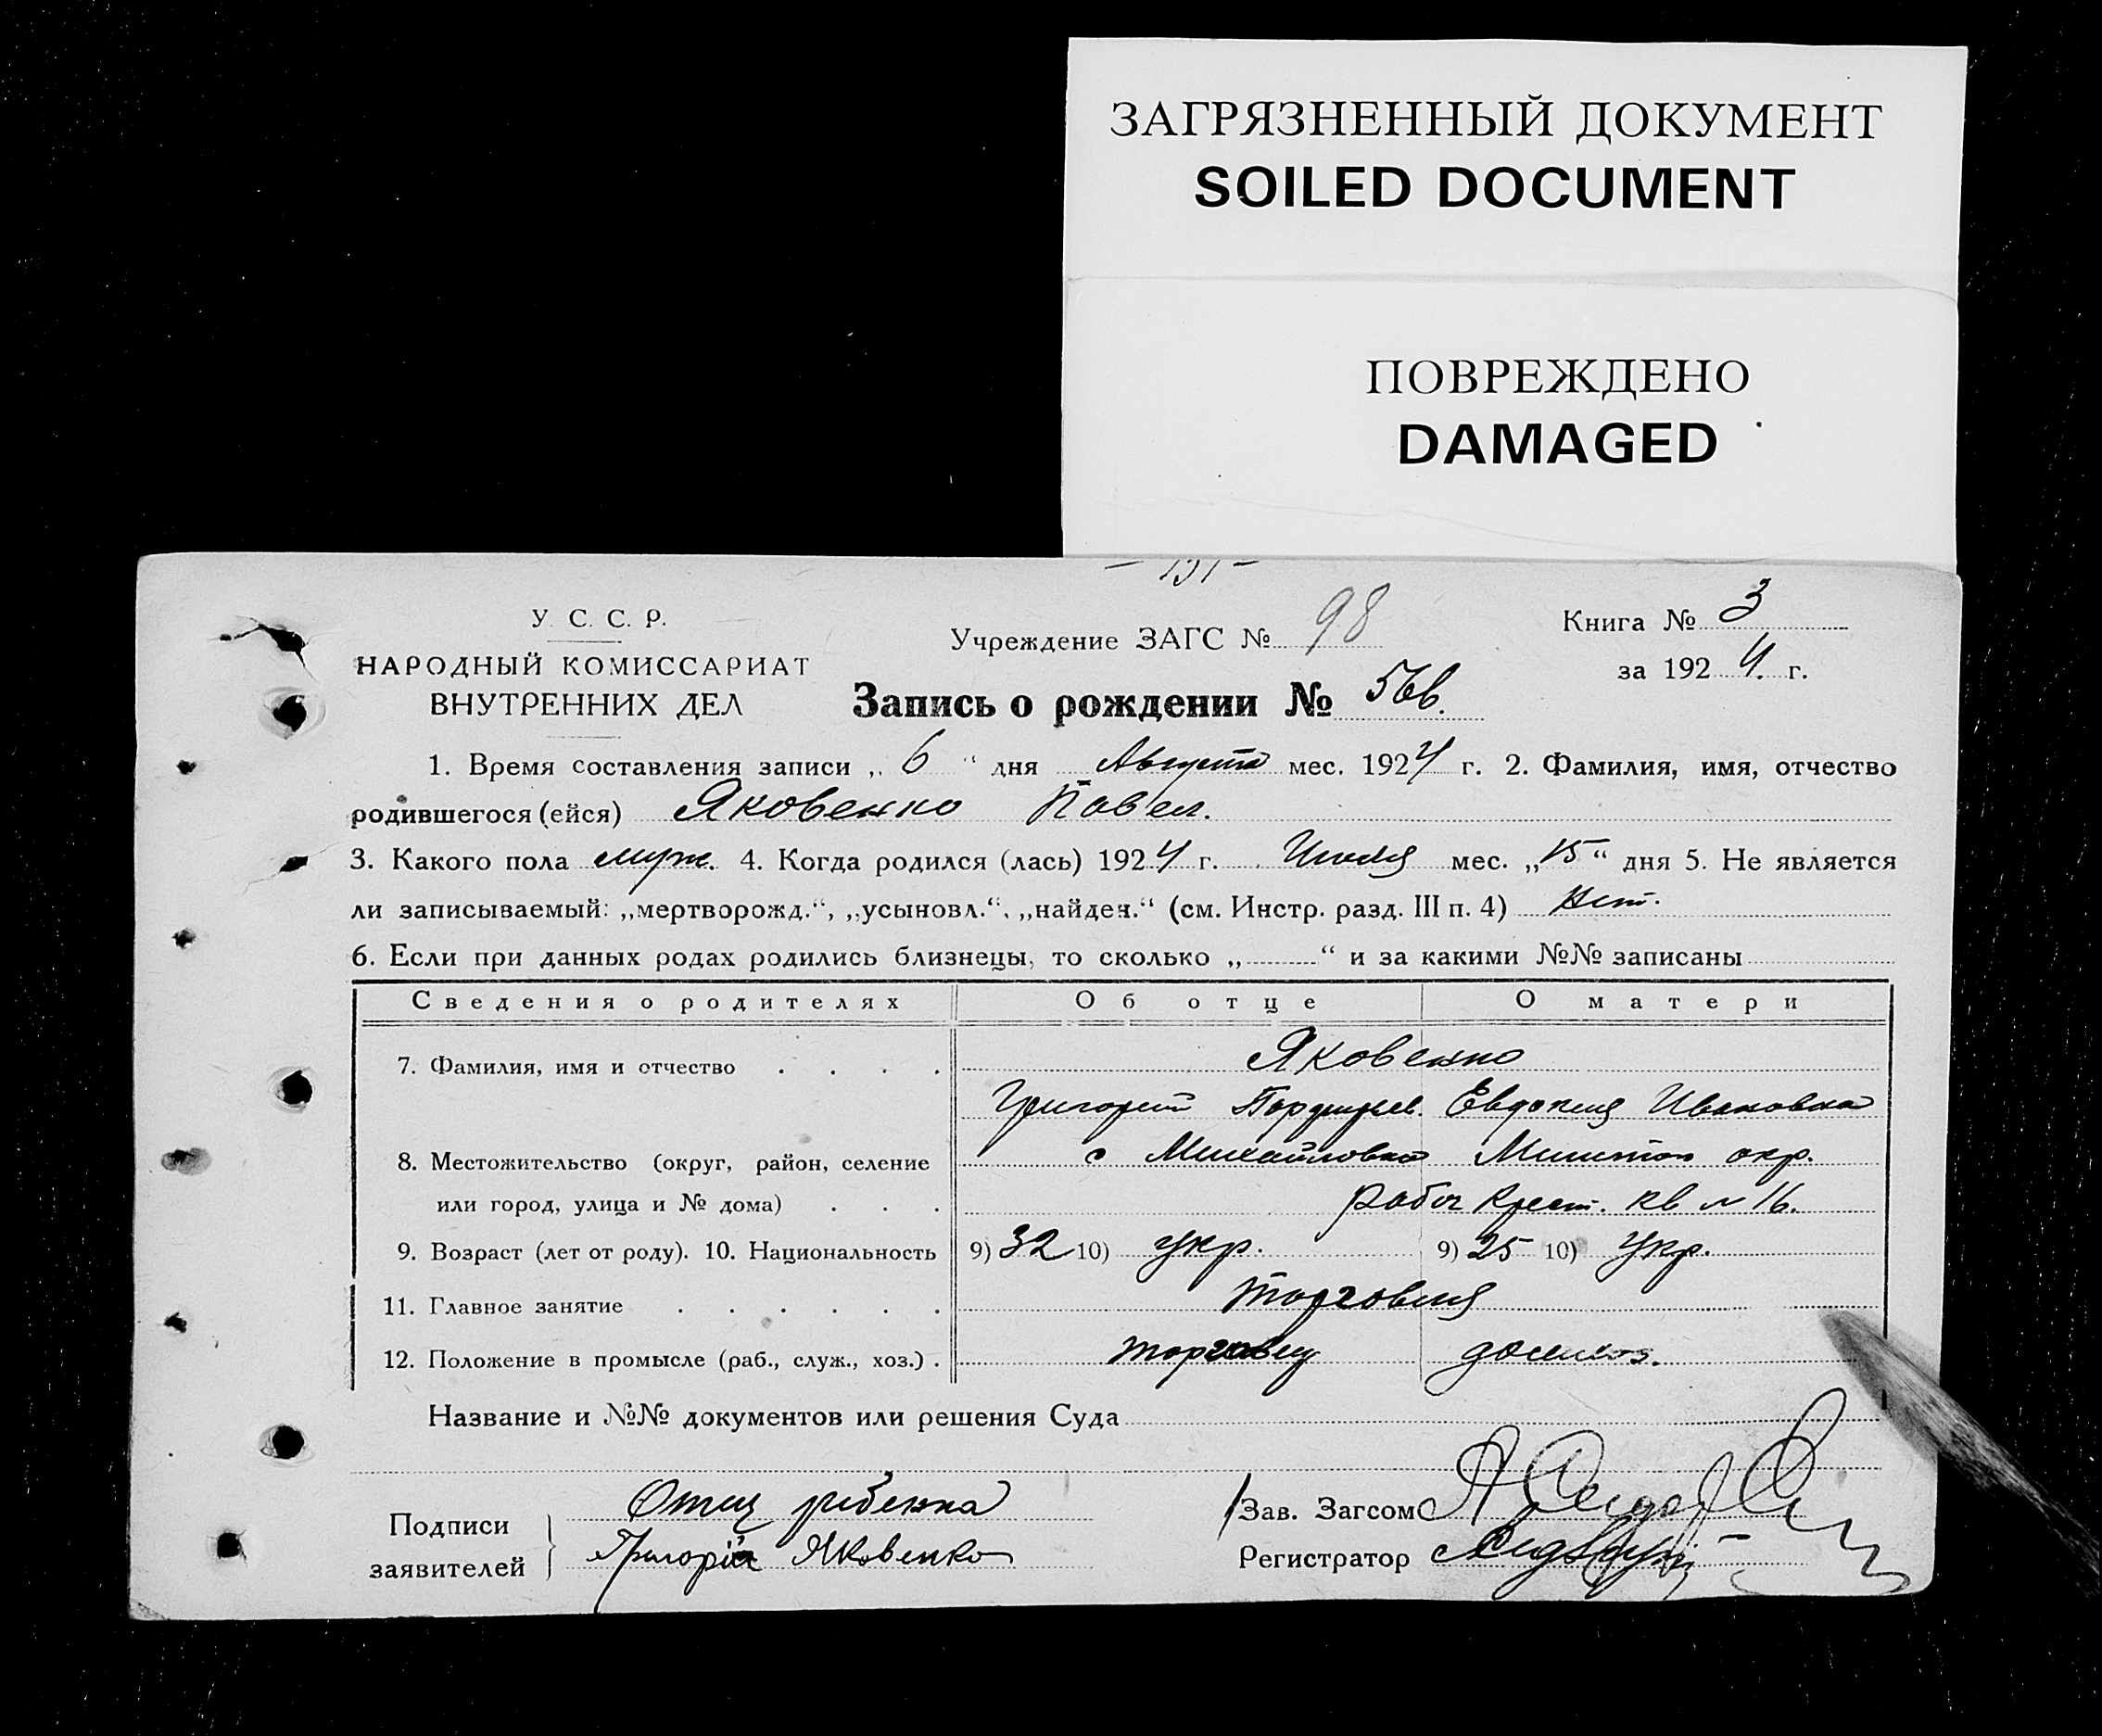 ЗАГРЯЗНЕННЫЙ ДОКУМЕНТ
SOILED DOCUMENT
ПОВРЕЖДЕНО
DAMAGED
У. С. С. Р.
НАРОДНЫЙ КОМИССАРИАТ
ВНУТРЕННИХ ДЕЛ
Учреждение ЗАГС № 98
Книга № 3
за 1924 г.
Запись о рождении №
1. Время составления записи „ 6 " дня Августа мес. 1924 г. 2. Фамилия, имя, отчество
родившегося (ейся) Яковенко Павел.
3. Какого пола муж. 4. Когда родился (лась) 1924 г. Июля мес. „15" дня 5. Не является
ли записываемый: „мертворожд.", „усыновл.", „найден." (см. Инстр. разд. III п. 4) Нет.
6. Если при данных родах родились близнецы, то сколько „ " и за какими №№ записаны
Сведения о родителях Об отце О матери
7. Фамилия, имя и отчество Яковенко
Григорий Евдокия Ивановна
8. Местожительство (округ, район, селение с Михайловка окр.
или город, улица и № дома) рабоч крест. кв № 16.
9. Возраст (лет от роду). 10. Национальность 9) 32 10) укр. 9) 25 10) укр.
11. Главное занятие торговля
12. Положение в промысле (раб., служ., хоз.) торговец домхоз.
Название и №№ документов или решения Суда
Подписи заявителей Отец ребенка
Григорій Яковенко
Зав. Загсом
Регистратор